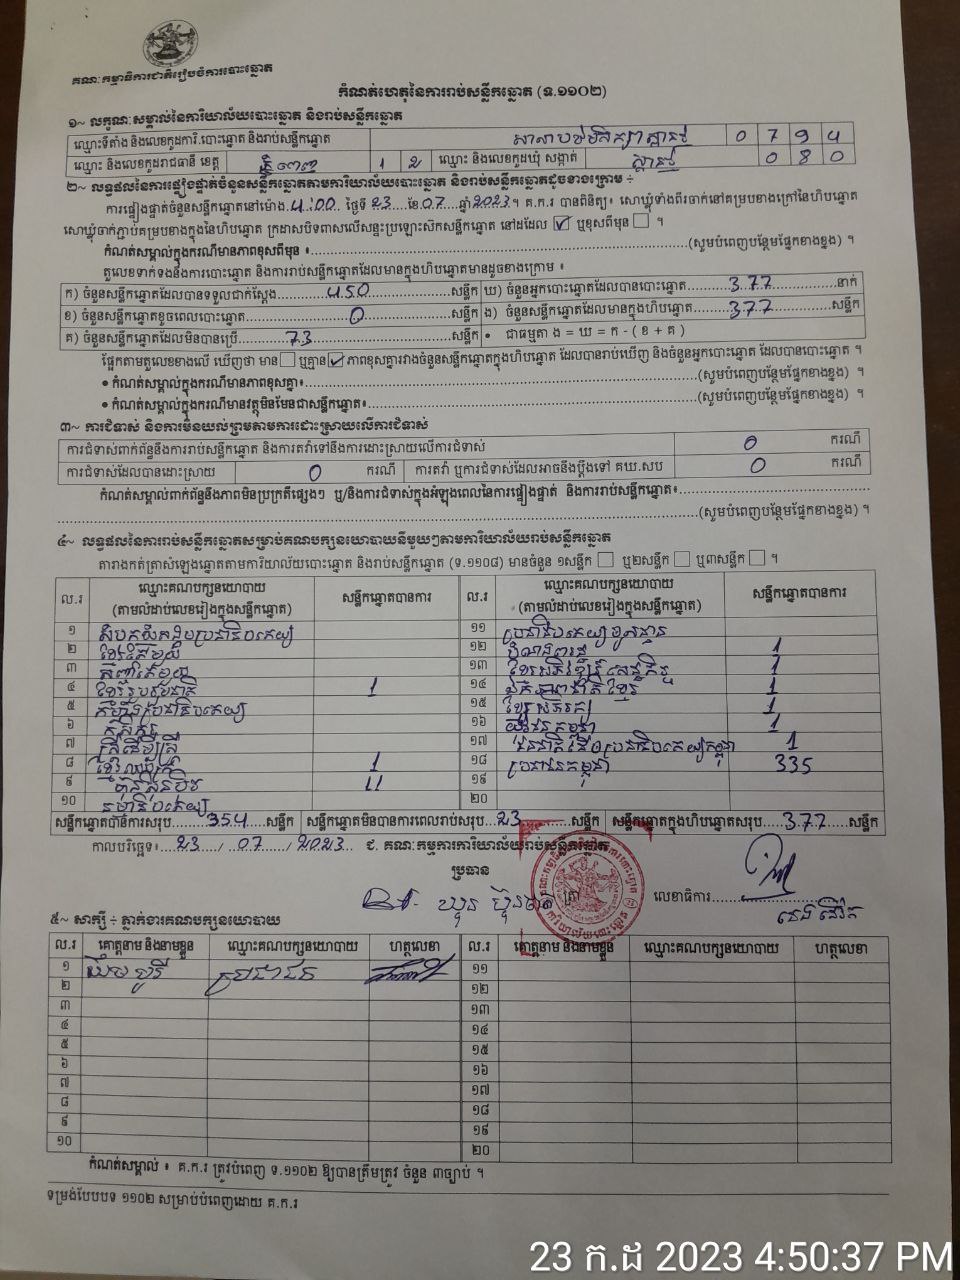 គណៈកម្មាធិការជាតិរៀបចំការបោះឆ្នោត
កំណត់ហេតុនៃការរាប់សន្លឹកឆ្នោត (ទ.១១០២)
១~ លក្ខណៈសម្គាល់នៃការិយាល័យបោះឆ្នោត និងរាប់សន្លឹកឆ្នោត
ឈ្មោះទីតាំង និងលេខកូដការិ.បោះឆ្នោត និងរាប់សន្លឹកឆ្នោត 0 7 9 4
ឈ្មោះ និងលេខកូដរាជធានី ខេត្ត ភ្នំពេញ 1 2 ឈ្មោះ និងលេខកូដឃុំ សង្កាត់ 0 8 0
២~ លទ្ធផលនៃការផ្ទៀងផ្ទាត់ចំនួនសន្លឹកឆ្នោតតាមការិយាល័យបោះឆ្នោត និងរាប់សន្លឹកឆ្នោតដូចខាងក្រោម ៖
ការផ្ទៀងផ្ទាត់ចំនួនសន្លឹកឆ្នោតនៅម៉ោង 4:00 ថ្ងៃទី 23 ខែ 07 ឆ្នាំ 2023 ។ គ.ក.រ បានពិនិត្យ៖ សោឃ្លុំទាំងពីរចាក់នៅគម្របខាងក្រៅនៃហិបឆ្នោត
សោឃ្លុំចាក់ភ្ជាប់គម្របខាងក្នុងនៃហិបឆ្នោត ក្រដាសបិទពាសលើសន្ទះប្រឡោះស៊កសន្លឹកឆ្នោត នៅដដែល ☑ ឬខុសពីមុន ☐ ។
កំណត់សម្គាល់ក្នុងករណីមានភាពខុសពីមុន ៖ (សូមបំពេញបន្ថែមផ្នែកខាងខ្នង) ។
តួលេខទាក់ទងនឹងការបោះឆ្នោត និងការរាប់សន្លឹកឆ្នោតដែលមានក្នុងហិបឆ្នោតមានដូចខាងក្រោម ៖
ក) ចំនួនសន្លឹកឆ្នោតដែលបានទទួលជាក់ស្ដែង 450 សន្លឹក ឃ) ចំនួនអ្នកបោះឆ្នោតដែលបានបោះឆ្នោត 377 នាក់
ខ) ចំនួនសន្លឹកឆ្នោតខូចពេលបោះឆ្នោត 0 សន្លឹក ង) ចំនួនសន្លឹកឆ្នោតដែលមានក្នុងហិបឆ្នោត 377 សន្លឹក
គ) ចំនួនសន្លឹកឆ្នោតដែលមិនបានប្រើ 73 សន្លឹក • ជាធម្មតា ង = ឃ = ក - ( ខ + គ )
ផ្អែកតាមតួលេខខាងលើ ឃើញថា មាន ☐ ឬគ្មាន ☑ ភាពខុសគ្នារវាងចំនួនសន្លឹកឆ្នោតក្នុងហិបឆ្នោត ដែលបានរាប់ឃើញ និងចំនួនអ្នកបោះឆ្នោត ដែលបានបោះឆ្នោត ។
• កំណត់សម្គាល់ក្នុងករណីមានភាពខុសគ្នា៖ (សូមបំពេញបន្ថែមផ្នែកខាងខ្នង) ។
• កំណត់សម្គាល់ក្នុងករណីមានវត្ថុមិនមែនជាសន្លឹកឆ្នោត៖ (សូមបំពេញបន្ថែមផ្នែកខាងខ្នង) ។
៣~ ការជំទាស់ និងការមិនយល់ព្រមតាមការដោះស្រាយលើការជំទាស់
ការជំទាស់ពាក់ព័ន្ធនឹងការរាប់សន្លឹកឆ្នោត និងការតវ៉ាទៅនឹងការដោះស្រាយលើការជំទាស់ 0 ករណី
ការជំទាស់ដែលបានដោះស្រាយ 0 ករណី ការតវ៉ា ឬការជំទាស់ដែលអាចនឹងប្ដឹងទៅ គឃ.សប 0 ករណី
កំណត់សម្គាល់ពាក់ព័ន្ធនឹងភាពមិនប្រក្រតីផ្សេងៗ ឬ/និងការជំទាស់ក្នុងអំឡុងពេលនៃការផ្ទៀងផ្ទាត់ និងការរាប់សន្លឹកឆ្នោត៖
(សូមបំពេញបន្ថែមផ្នែកខាងខ្នង) ។
៤~ លទ្ធផលនៃការរាប់សន្លឹកឆ្នោតសម្រាប់គណបក្សនយោបាយនីមួយៗតាមការិយាល័យរាប់សន្លឹកឆ្នោត
តារាងកត់ត្រាសំឡេងឆ្នោតតាមការិយាល័យបោះឆ្នោត និងរាប់សន្លឹកឆ្នោត (ទ.១១០៨) មានចំនួន ១សន្លឹក ☐ ឬ២សន្លឹក ☐ ឬ៣សន្លឹក ☐ ។
ល.រ ឈ្មោះគណបក្សនយោបាយ (តាមលំដាប់លេខរៀងក្នុងសន្លឹកឆ្នោត) សន្លឹកឆ្នោតបានការ ល.រ ឈ្មោះគណបក្សនយោបាយ (តាមលំដាប់លេខរៀងក្នុងសន្លឹកឆ្នោត) សន្លឹកឆ្នោតបានការ
១ សំបុកឃ្មុំសង្គមប្រជាធិបតេយ្យ ១១ ប្រជាធិបតេយ្យមូលដ្ឋាន
២ ខ្មែរតែមួយ ១២ 1
៣ ១៣ ខ្មែរអភិវឌ្ឍន៍សេដ្ឋកិច្ច 1
៤ ខ្មែររួបរួមជាតិ 1 ១៤ ឯកភាពជាតិខ្មែរ 1
៥ កម្លាំងប្រជាធិបតេយ្យ ១៥ ខ្មែរអភិរក្ស 1
៦ កសិករ ១៦ យុវជនកម្ពុជា 1
៧ ស្ត្រីដើម្បីស្ត្រី ១៧ 1
៨ 1 ១៨ ប្រជាជនកម្ពុជា 335
៩ ហ៊្វុនស៊ិនប៉ិច 11 ១៩
១០ ធម្មាធិបតេយ្យ ២០
សន្លឹកឆ្នោតបានការសរុប 354 សន្លឹក សន្លឹកឆ្នោតមិនបានការពេលរាប់សរុប 23 សន្លឹក សន្លឹកឆ្នោតក្នុងហិបឆ្នោតសរុប 377 សន្លឹក
កាលបរិច្ឆេទ៖ 23 / 07 / 2023 ជ. គណៈកម្មការការិយាល័យរាប់សន្លឹកឆ្នោត
ប្រធាន
ត្រា លេខាធិការ
៥~ សាក្សី ~ ភ្នាក់ងារគណបក្សនយោបាយ
ល.រ គោត្តនាម និងនាមខ្លួន ឈ្មោះគណបក្សនយោបាយ ហត្ថលេខា ល.រ គោត្តនាម និងនាមខ្លួន ឈ្មោះគណបក្សនយោបាយ ហត្ថលេខា
១ ប្រជាជន ១១
២ ១២
៣ ១៣
៤ ១៤
៥ ១៥
៦ ១៦
៧ ១៧
៨ ១៨
៩ ១៩
១០ ២០
កំណត់សម្គាល់ ៖ គ.ក.រ ត្រូវបំពេញ ទ.១១០២ ឱ្យបានត្រឹមត្រូវ ចំនួន ៣ច្បាប់ ។
ទម្រង់បែបបទ ១១០២ សម្រាប់បំពេញដោយ គ.ក.រ
23 ក.ដ 2023 4:50:37 PM